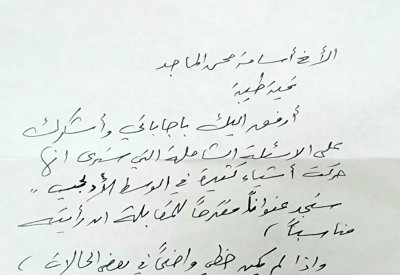 الأخ أسامة محسن الماجد
تحية طيبة
أرفق اليك باجاباتي وأشكرك
على الاسئلة الشاملة التي سترى انها
حركت أشياء كثيرة في الوسط الأدبي "
ستجد عنواناً مقترحاً للمقابلة ان رأيته
مناسباً )
واذا لم يكن خطي واضحاً في بعض الحالات )